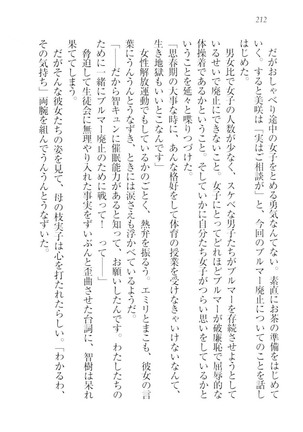 212
だがおしゃべり途中の女子をとめる勇気なんてない。素直にお茶の準備をはじめて
いく。すると美咲は「実はご相談が」と、今回のブルマー廃止についてのことを話し
はじめた。
男女比で女子の人数が少なく、スケベな男子たちがブルマーを存続させようとして
いるせいで廃止にできないこと。女子にとってどれほどブルマーが破廉恥で屈辱的な
体操着であるかということ、そしていかに自分たち女子がつらい思いをしているかと
いうことを延々と喋りつづけた。
「思春期の大事な時に、あんな格好をして体育の授業を受けなきゃいけないなんて、
生き地獄もいいとこなんです」
女性解放運動でもしているかのごとく、熱弁を振るう。エミリとまこも、彼女の言
葉にうんうんとうなずき、ときには涙さえも浮かべているようだ。
「――だから智キュンに催眠能力があると知って、お願いしたんです。わたしたちの
ために一緒にブルマー廃止のために戦って！　って――」
脅迫して生徒会に無理やり入れた事実をずいぶんと歪曲させた台詞に、智樹は呆れ
果ててしまう。
だがそんな彼女たちの姿を見て、母の枝実子は心を打たれたらしい。「わかるわ、
その気持ち」両腕を組んでうんうんとうなずいた。